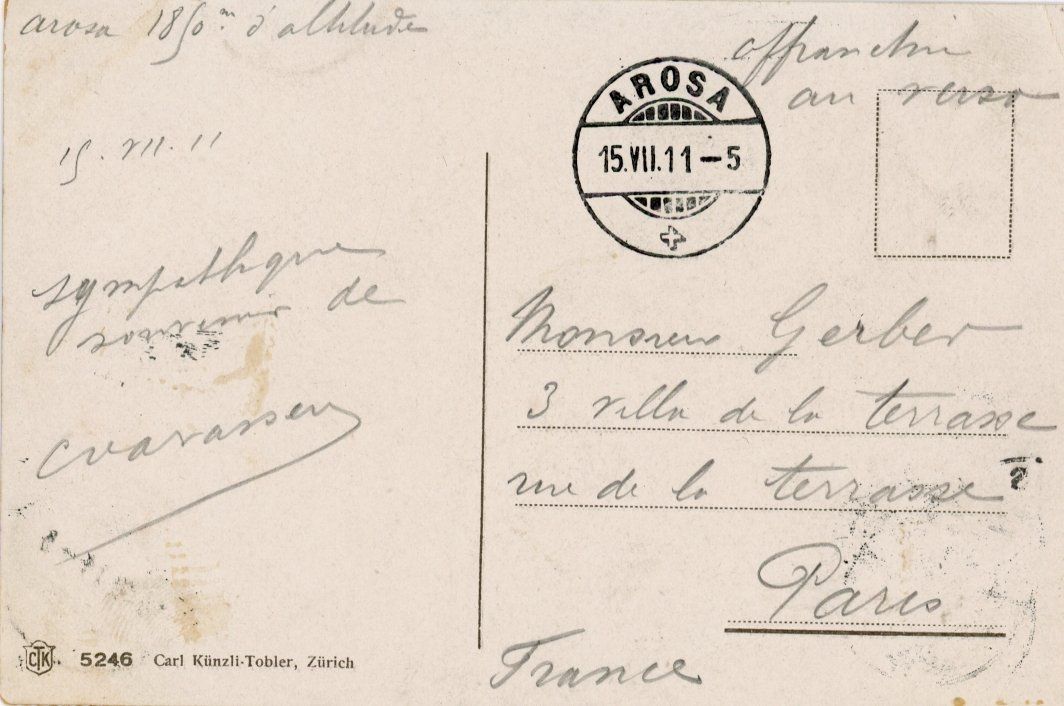 arosa 1850 m d'altitude
affranchie
au verso
AROSA
15.VII.11-5
15.VII.11
sympathique
souvenir de
Monsieur Gerber
3 villa de la terrasse
rue de la terrasse
Paris
France
CTK 5246 Carl Künzli-Tobler, Zürich